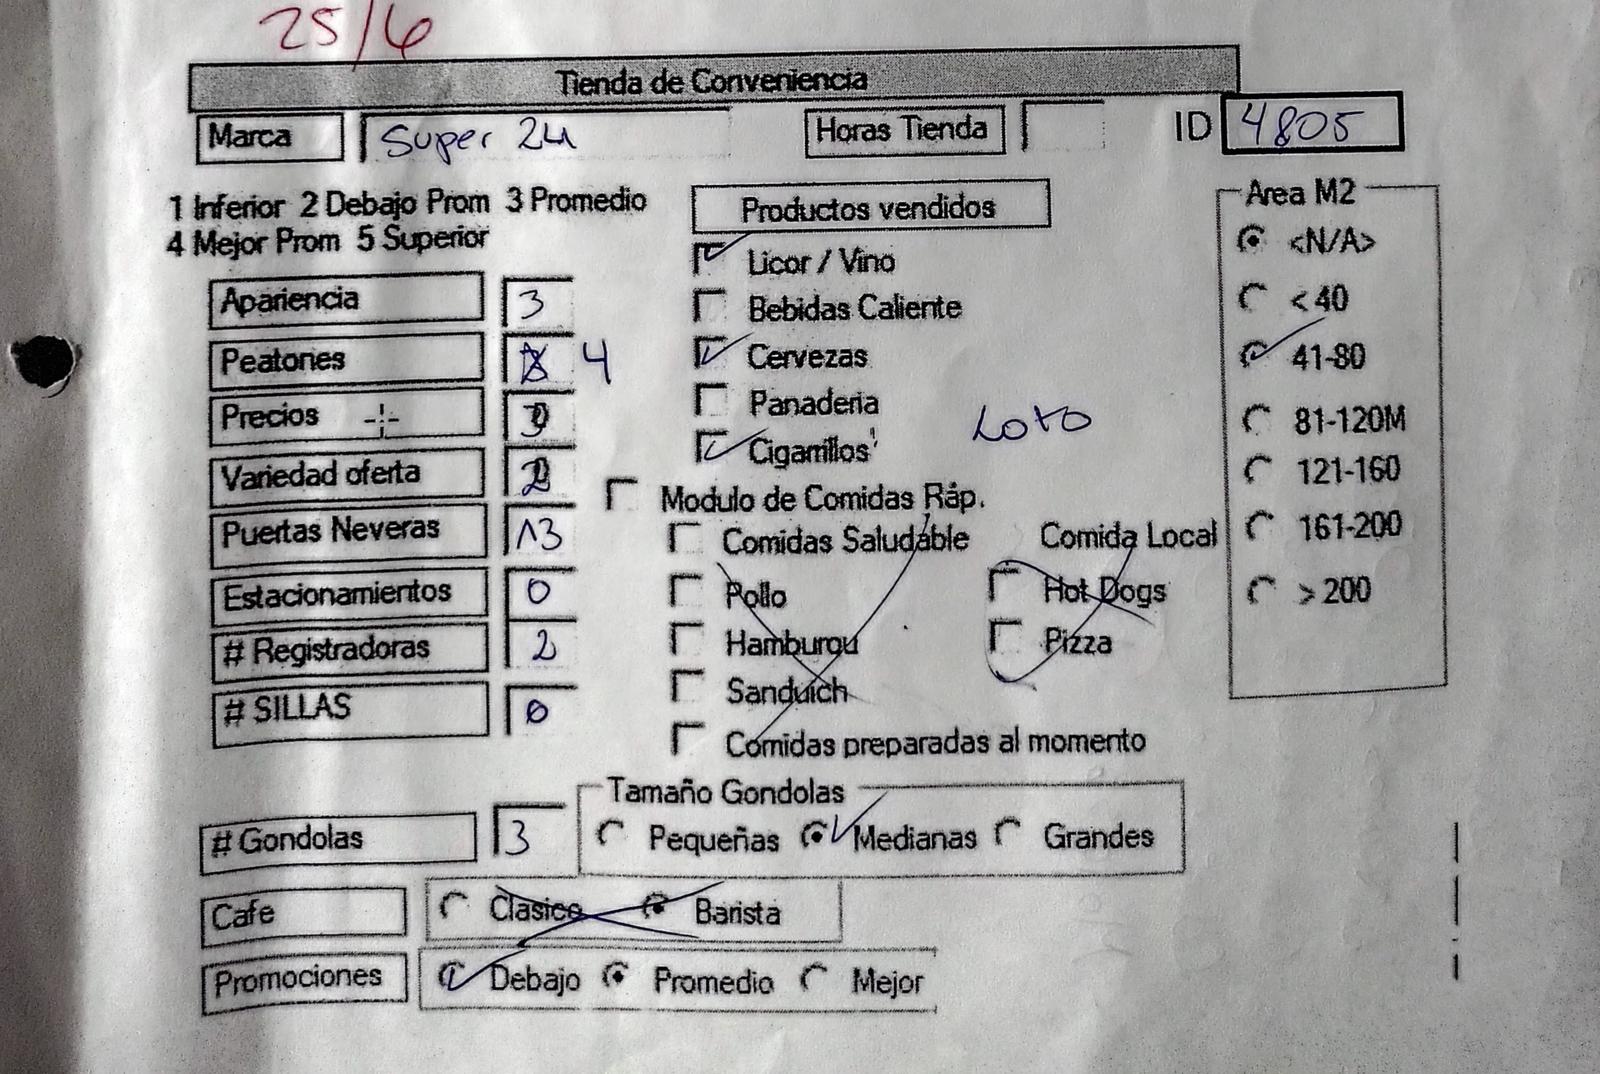 25/6
Tienda de Conveniencia
Marca Super 24 Horas Tienda ID 4805
1 Inferior 2 Debajo Prom 3 Promedio
4 Mejor Prom 5 Superior
Apariencia 3
Peatones 4
Precios 3
Variedad oferta 2
Puertas Neveras 13
Estacionamientos 0
# Registradoras 2
# SILLAS 0
Productos vendidos
Licor / Vino
Bebidas Caliente
Cervezas
Panaderia
Cigarrillos
Loto
Modulo de Comidas Ráp.
Comidas Saludable Comida Local
Pollo Hot Dogs
Hamburgu Pizza
Sanduich
Comidas preparadas al momento
Area M2
<N/A>
< 40
41-80
81-120M
121-160
161-200
> 200
Tamaño Gondolas
# Gondolas 3 Pequeñas Medianas Grandes
Cafe Clasico Barista
Promociones Debajo Promedio Mejor